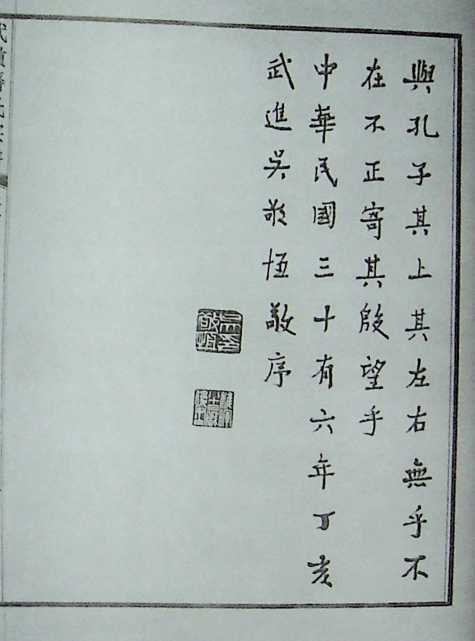 與孔子其上其左右無乎不
在不正寄其殷望乎
中華民國三十有六年丁亥
武進吳敬恆敬序